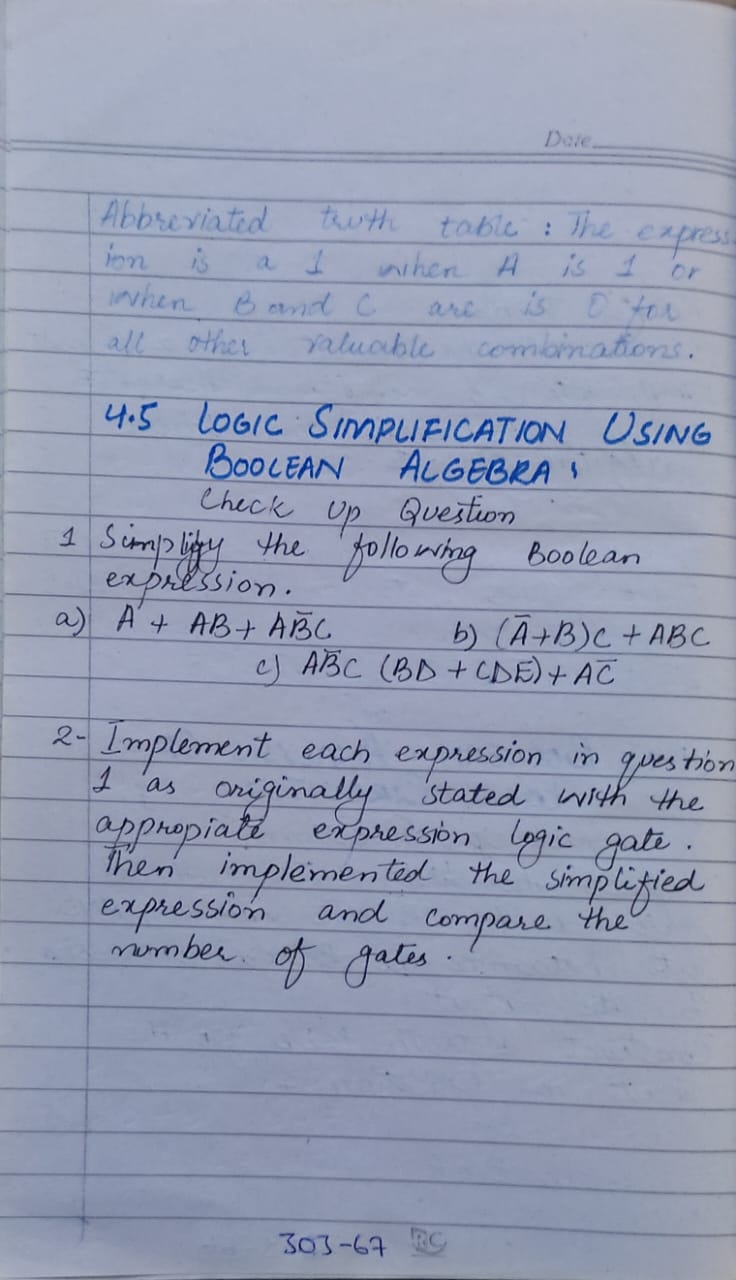 Date
Abbreviated truth table : The express
ion is a 1 when A is 1 or
when B and C are is 0 for
all other valuable combinations.
4.5 LOGIC SIMPLIFICATION USING
BOOLEAN ALGEBRA :
Check Up Question
1 Simplify the following Boolean
expression.
a) A + AB + AB̅C b) (A̅+B)C + ABC
c) AB̅C (BD + CDE) + AC̅
2- Implement each expression in question
1 as originally stated with the
appropiate expression logic gate.
Then implemented the simplified
expression and compare the
number of gates.
303-67 RC